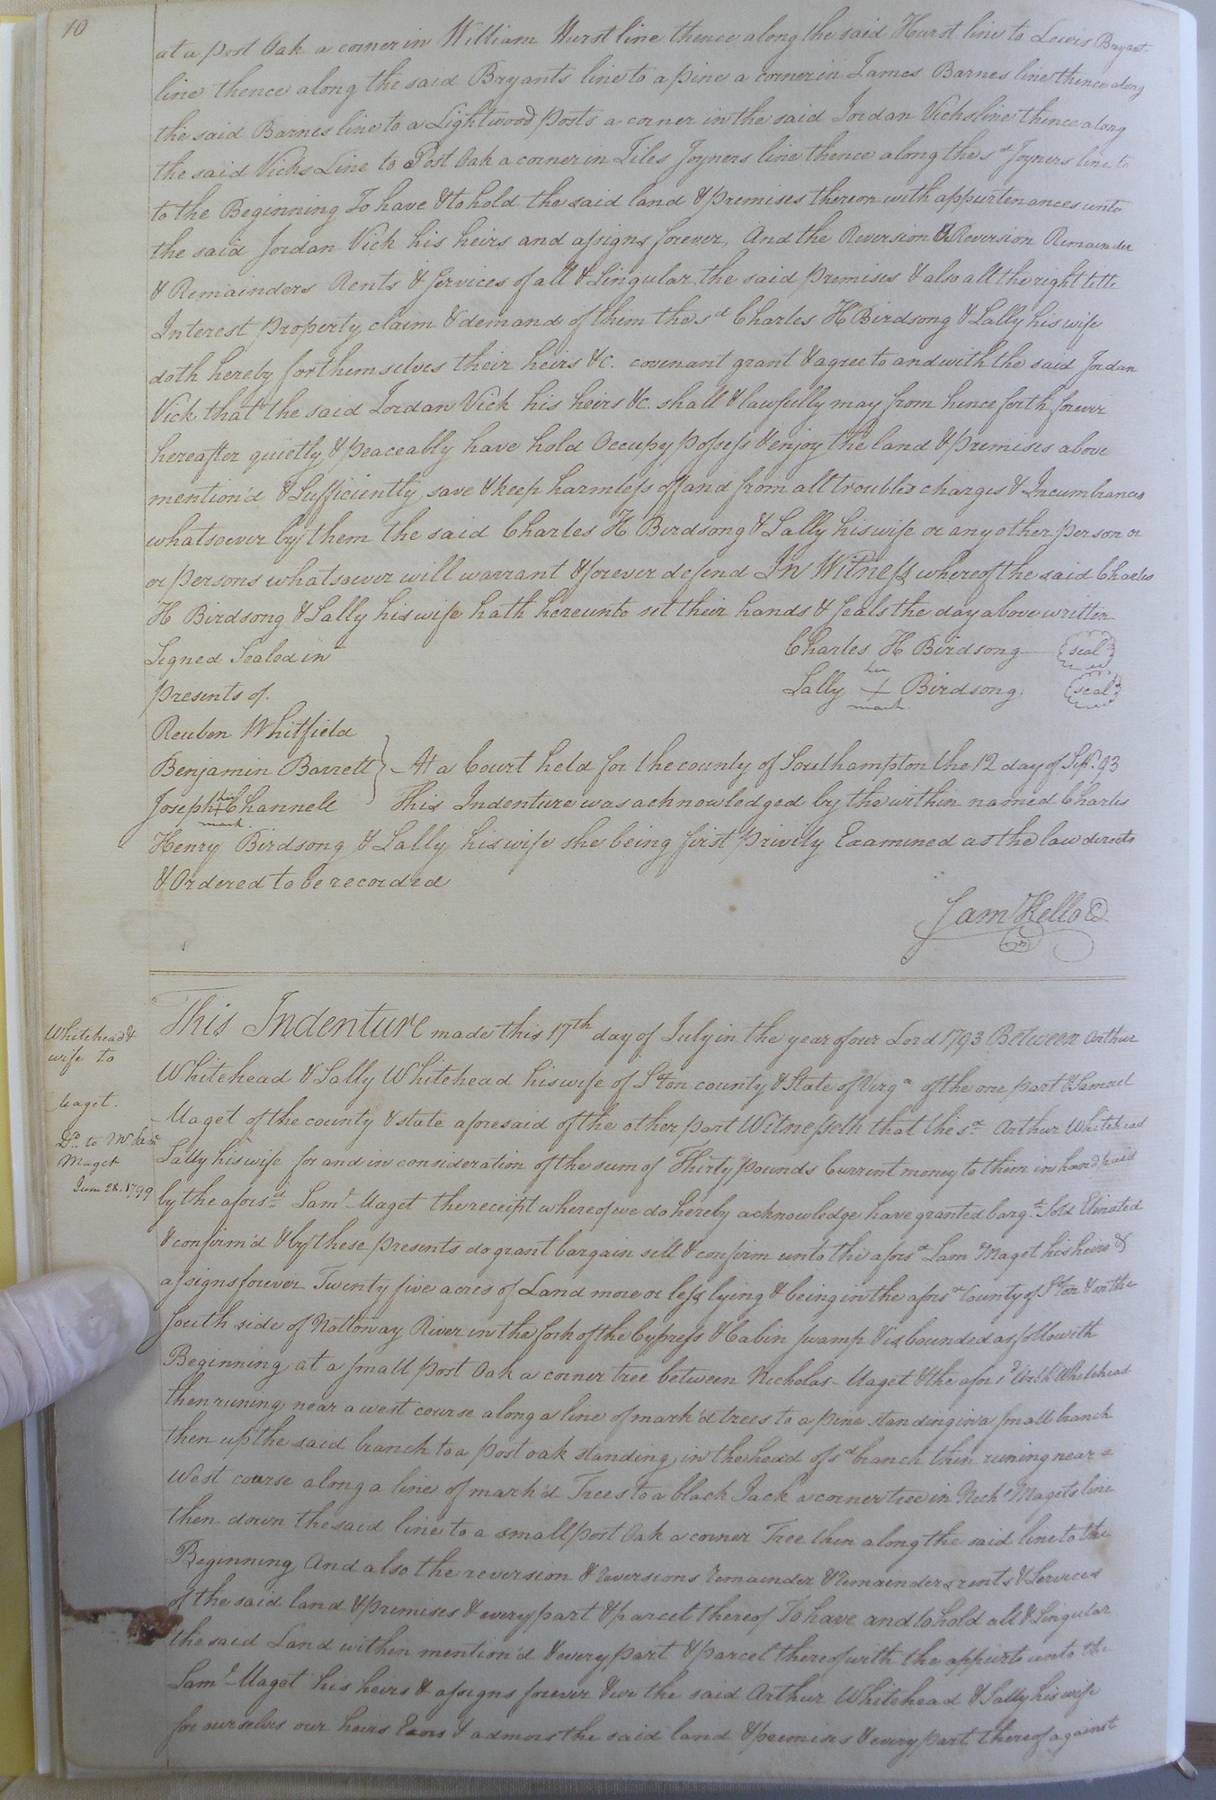 10
at a post Oak a corner in William Hurst line thence along the said Hurst line to Lewis Bryant
line thence along the said Bryants line to a pine a corner in James Barnes line thence along
the said Barnes line to a Lightwood posts a corner in the said Jordan Vicks line thence along
the said Vicks Line to Post Oak a corner in Giles Joyners line thence along the sd Joyners line to
to the Beginning To have & to hold the said land & premises thereon with appurtenances unto
the said Jordan Vick his heirs and assigns forever, And the Reversion & Reversion Remainder
& Remainders Rents & Services of all & Singular the said premises & also all the right title
Interest property claim & demand of them the sd Charles H Birdsong & Sally his wife
doth hereby for themselves their heirs &c. covenant grant & agree to and with the said Jordan
Vick that the said Jordan Vick his heirs &c. shall & lawfully may from hence forth forever
hereafter quietly & peaceably have hold Occupy possess & enjoy the land & premises above
mention'd & Sufficiently save & keep harmless off and from all troubles charges & Incumbrances
whatsoever by them the said Charles H Birdsong & Sally his wife or any other person or
or persons whatsoever will warrant & forever defend In Witness whereof the said Charles
H Birdsong & Sally his wife hath hereunto set their hands & seals the day above written
Signed Sealed in Charles H Birdsong (seal)
presents of. Sally her + mark Birdsong (seal)
Reuben Whitfield
Benjamin Barrett } At a Court held for the county of Southampton the 12 day of Sept. 93
Joseph his + mark Channell This Indenture was acknowledged by the within named Charles
Henry Birdsong & Sally his wife she being first privily Examined as the law directs
& Ordered to be recorded
Sam Kello C
Whitehead &
wife to
Maget.
This Indenture made this 17th day of July in the year of our Lord 1793 Between Arthur
Whitehead & Sally Whitehead his wife of Ston county & State of Virga of the one part & Samuel
Maget of the county & state aforesaid of the other part Witnesseth that the sd Arthur Whitehead
Dd. to
Maget
June 28. 1799
Sally his wife for and in consideration of the sum of Thirty pounds Current money to them in hand paid
by the aforsd Saml Maget the receipt whereof we do hereby acknowledge have granted bargd Sold Eliniated
& confirm'd & by these presents do grant bargain sell & confirm unto the aforsd Sam Maget his heirs &
assigns forever Twenty five acres of Land more or less lying & being in the aforsd County of Ston & on the
South side of Nottoway River in the fork of the Cypress & Cabin swamp & is bounded as followith
Beginning at a small post Oak a corner tree between Nicholas Maget & the aforsd Arth Whitehead
then runing near a west course along a line of mark'd trees to a pine standing in a small branch
then up the said branch to a post oak standing in the head of sd branch then runing near a
West course along a line of mark'd Trees to a black Jack a corner tree in Nichs Magets line
then down the said line to a small post Oak a corner Tree then along the said line to the
Beginning And also the reversion & reversions remainder & remainders rents & Services
of the said land & premises & every part & parcel thereof To have and to hold all & Singular
the said Land within mention'd & every part & parcel thereof with the appurts unto the
Saml Maget his heirs & assigns forever & we the said Arthur Whitehead & Sally his wife
for ourselves our heirs Exors & admors the said land & premises & every part thereof against